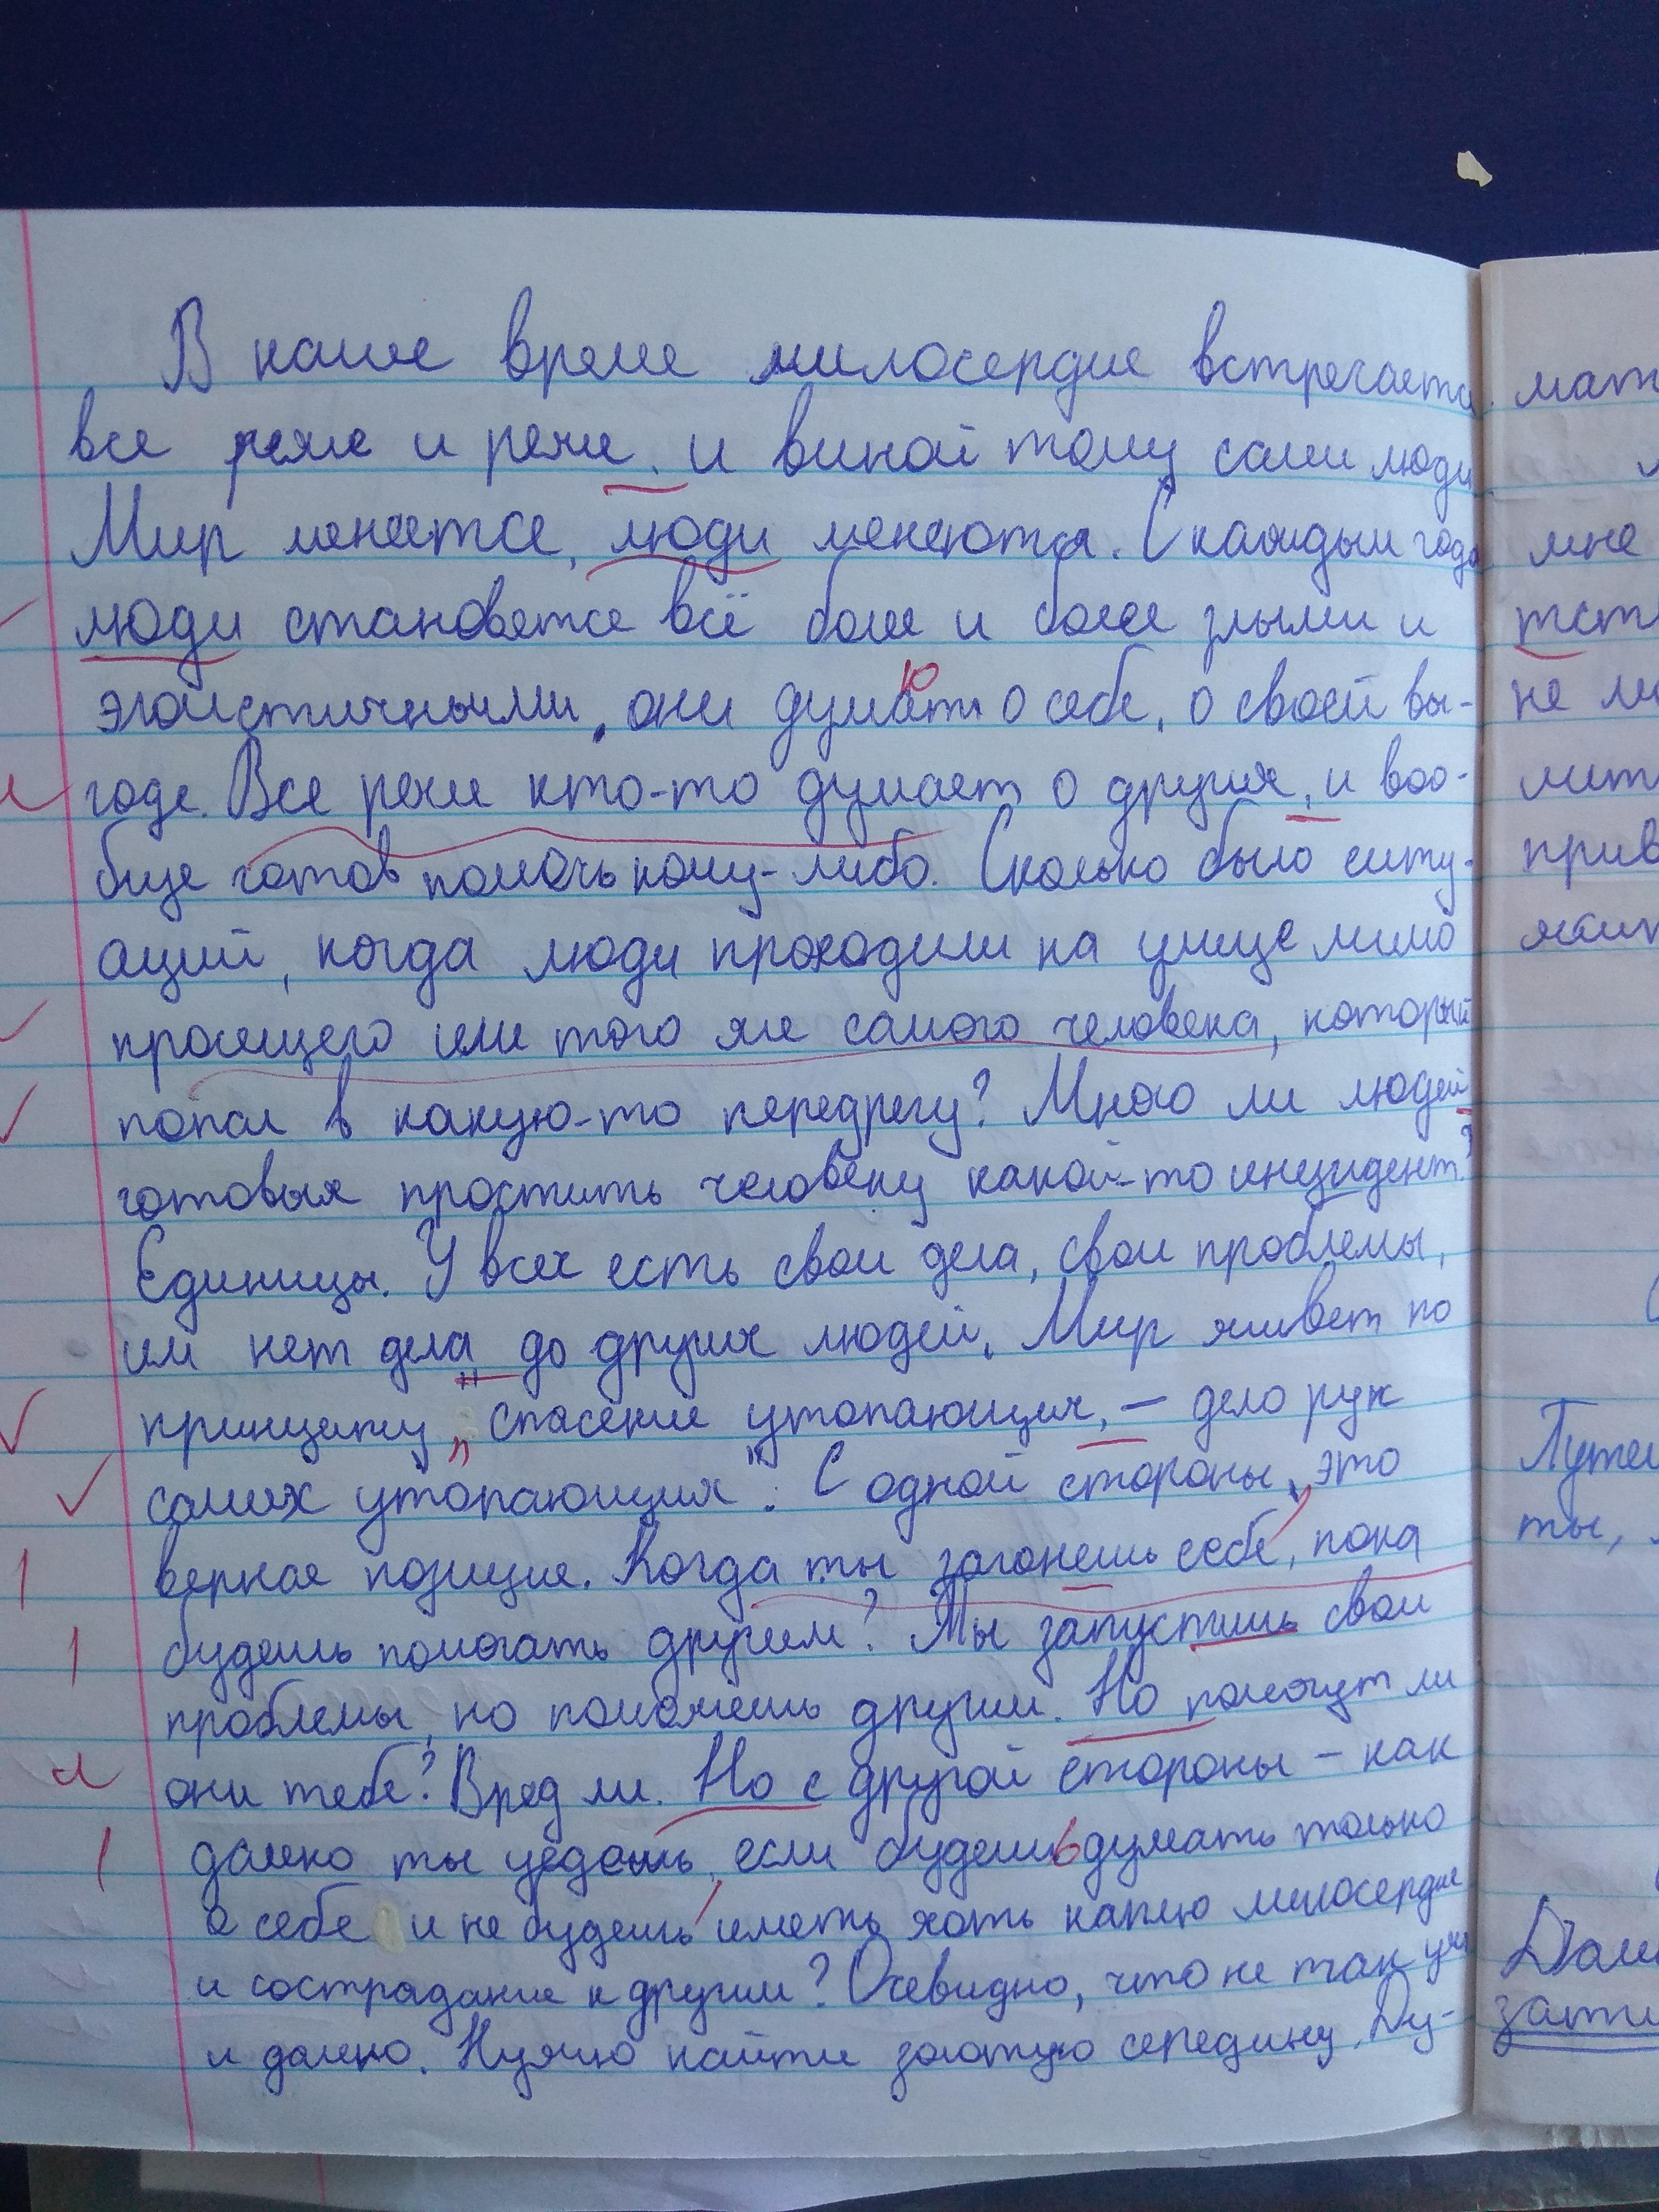 В наше время милосердие встречается
все реже и реже, и виной тому сами люди
Мир меняется, люди меняются. С каждым годо
люди становятся всё более и более злыми и
эгоистичными, они думают о себе, о своей вы-
годе. Все реже кто-то думает о других, и воо-
бще готов помочь кому-либо. Сколько было ситу-
аций, когда люди проходили на улице мимо
просящего или того же самого человека, который
попал в какую-то передрягу? Много ли людей
готовых простить человеку какой-то инцидент?
Единицы. У всех есть свои дела, свои проблемы,
им нет дела до других людей. Мир живет по
принципу „спасение утопающих, – дело рук
самих утопающих". С одной стороны, это
верная позиция. Когда ты загонешь себя, пока
будешь помогать другим? Ты запустишь свои
проблемы, но поможешь другим. Но помогут ли
они тебе? Вред ли. Но с другой стороны – как
далеко ты уедешь, если будешь думать только
о себе и не будешь иметь хоть каплю милосердие
и сострадание к другим? Очевидно, что не так уж
и далеко. Нужно найти золотую середину. Ду-
мат
мне
тст
не
лит
прив
жит
Путеш
ты,
Дом
зати